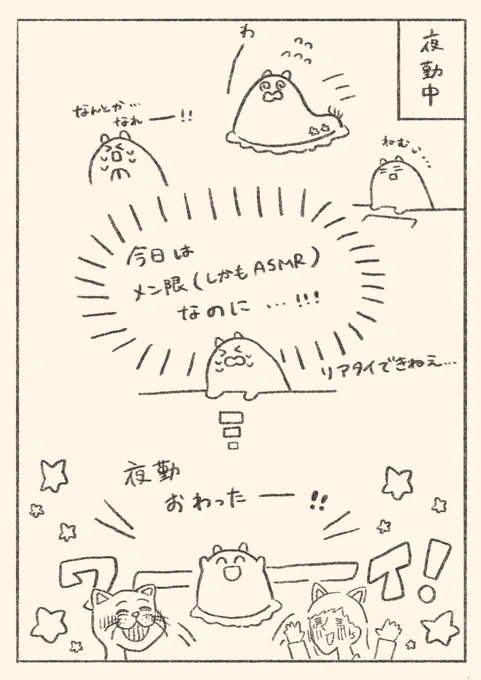 夜勤中
わ
なんとか…
なれー!!
ねむ…
今日は
メン限(しかもASMR)
なのに…!!!
リアタイできねえ…
夜勤
おわったー!!
ワーーイ!